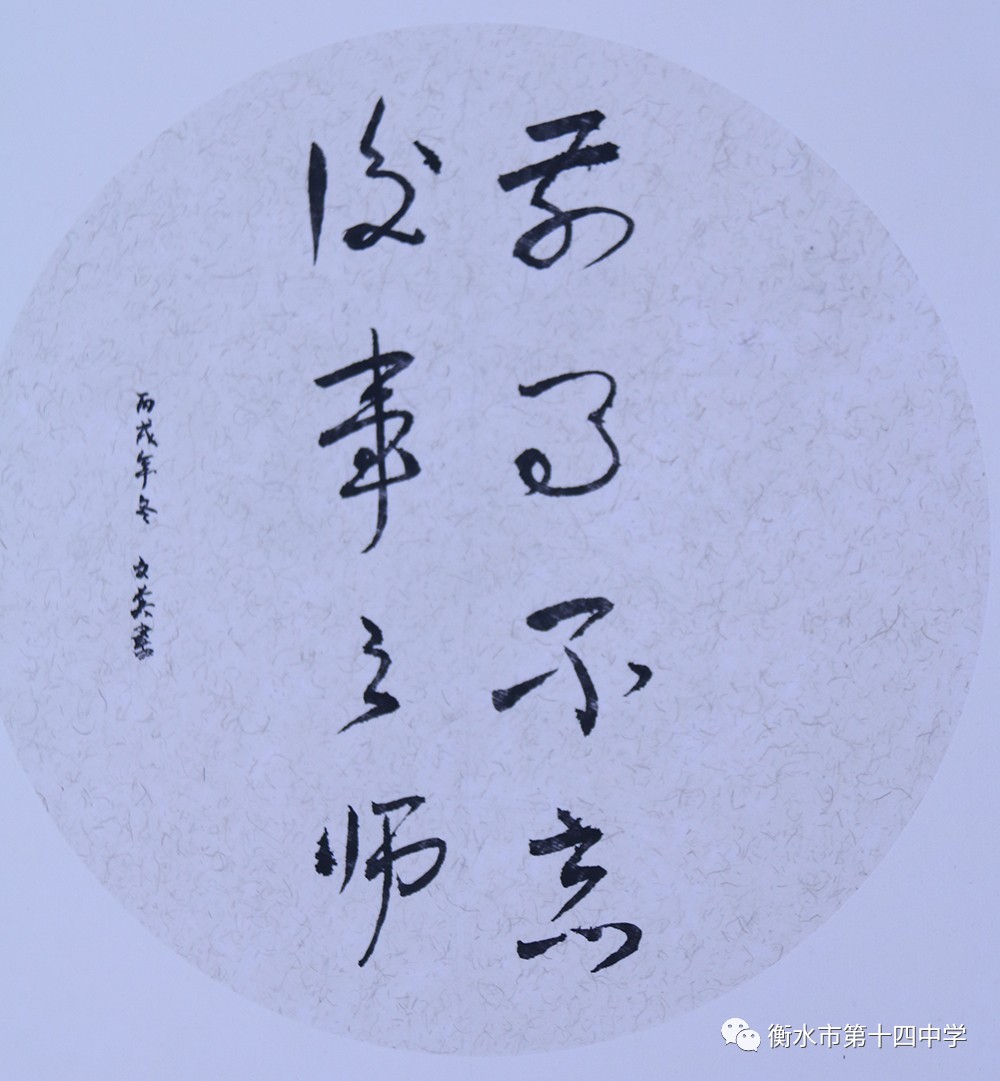 前事不忘
後事之师
丙戌年冬 文英書
衡水市第十四中学